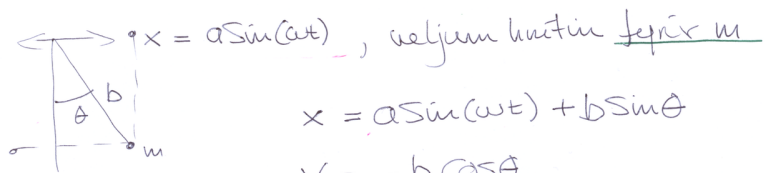 x = a Sin(ωt) , veljum hnitin fyrir m
b
θ
x = a Sin(ωt) + b Sinθ
m
b cosθ